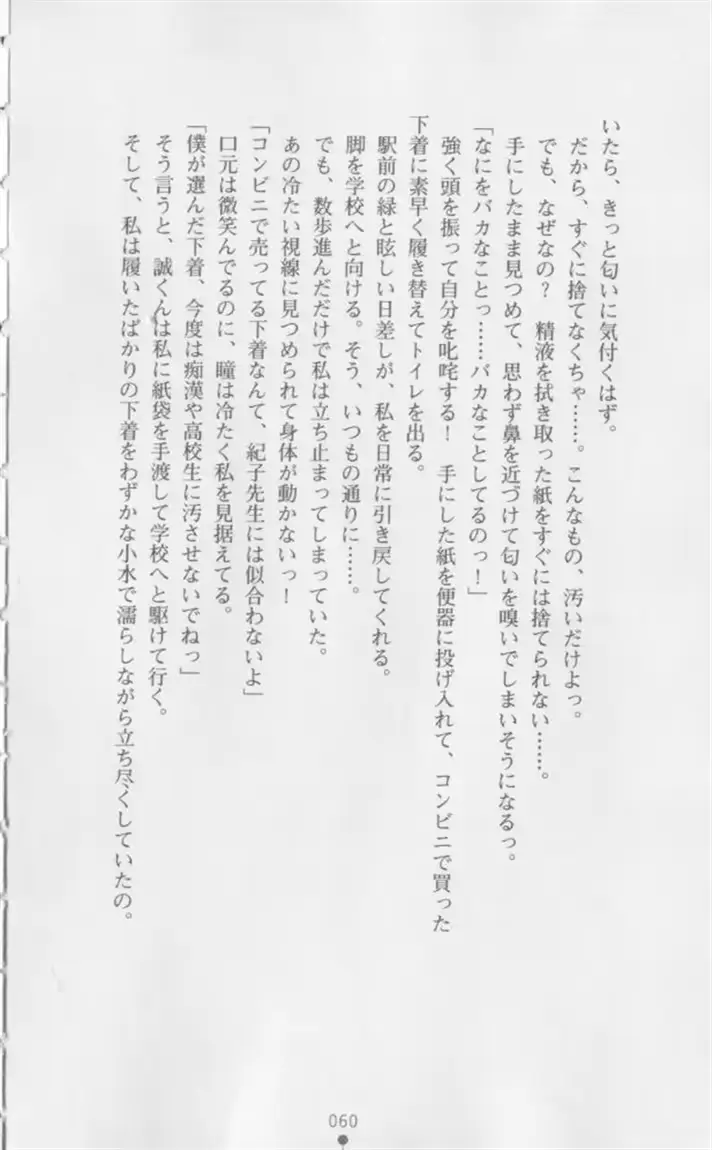 いたら、きっと匂いに気付くはず。
だから、すぐに捨てなくちゃ……。こんなもの、汚いだけよっ。
でも、なぜなの？　精液を拭き取った紙をすぐには捨てられない……。
手にしたまま見つめて、思わず鼻を近づけて匂いを嗅いでしまいそうになるっ。
「なにをバカなことっ……バカなことしてるのっ！」
強く頭を振って自分を叱咤する！　手にした紙を便器に投げ入れて、コンビニで買った
下着に素早く履き替えてトイレを出る。
駅前の緑と眩しい日差しが、私を日常に引き戻してくれる。
脚を学校へと向ける。そう、いつもの通りに……。
でも、数歩進んだだけで私は立ち止まってしまっていた。
あの冷たい視線に見つめられて身体が動かないっ！
「コンビニで売ってる下着なんて、紀子先生には似合わないよ」
口元は微笑んでるのに、瞳は冷たく私を見据えてる。
「僕が選んだ下着、今度は痴漢や高校生に汚させないでねっ」
そう言うと、誠くんは私に紙袋を手渡して学校へと駆けて行く。
そして、私は履いたばかりの下着をわずかな小水で濡らしながら立ち尽くしていたの。
060